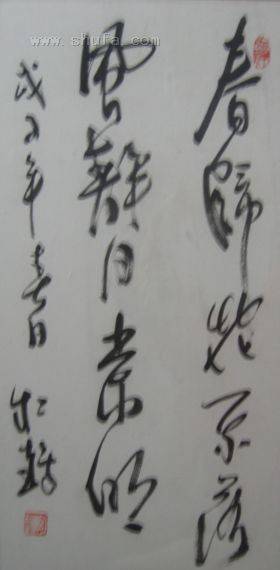 www.shufa.com
春歸花不落
風靜月常明
戊子年春日